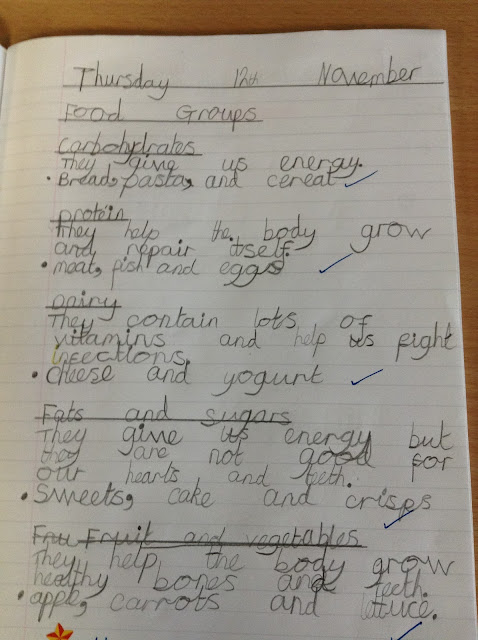 Thursday 12th November
Food Groups
Carbohydrates
They give us energy.
• Bread, pasta, and cereal
protein
They help the body grow
and repair itself.
• meat, fish and eggs
Dairy
They contain lots of
vitamins and help us fight
infections.
• cheese and yogurt
Fats and sugars
They give us energy but
they are not good for
our hearts and teeth.
• Sweets, cake and crisps
Fru Fruit and vegetables
They help the body grow
healthy bones and teeth.
• apple, carrots and lettuce.